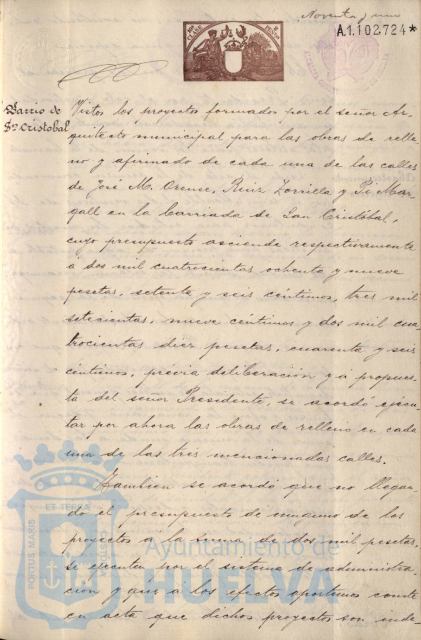 Noventa y uno
A.1.102,724*
Barrio de
Sn. Cristobal
Vistos los proyectos formados por el señor Ar-
quitecto municipal para las obras de relle-
no y afirmado de cada una de las calles
de José M. Orense, Ruiz Zorrilla y Pi Mar-
gall en la barriada de San Cristóbal,
cuyo presupuesto asciende respectivamente
á dos mil cuatrocientas ochenta y nueve
pesetas, setenta y seis céntimos, tres mil
setecientas, nueve céntimos y dos mil cua-
trocientas diez pesetas, cuarenta y seis
céntimos, previa deliberación y á propues-
ta del señor Presidente, se acordó ejecu-
tar por ahora las obras de relleno en cada
una de las tres mencionadas calles.
Tambien se acordó que no llegan-
do el presupuesto de ninguno de los
proyectos á la suma de dos mil pesetas,
se ejecuten por el sistema de administra-
cion y que a los efectos oportunos conste
en acta que dichos proyectos son inde
PORTUS MARIS
ET TERRÆ
CUSTODIA
Ayuntamiento de
HUELVA